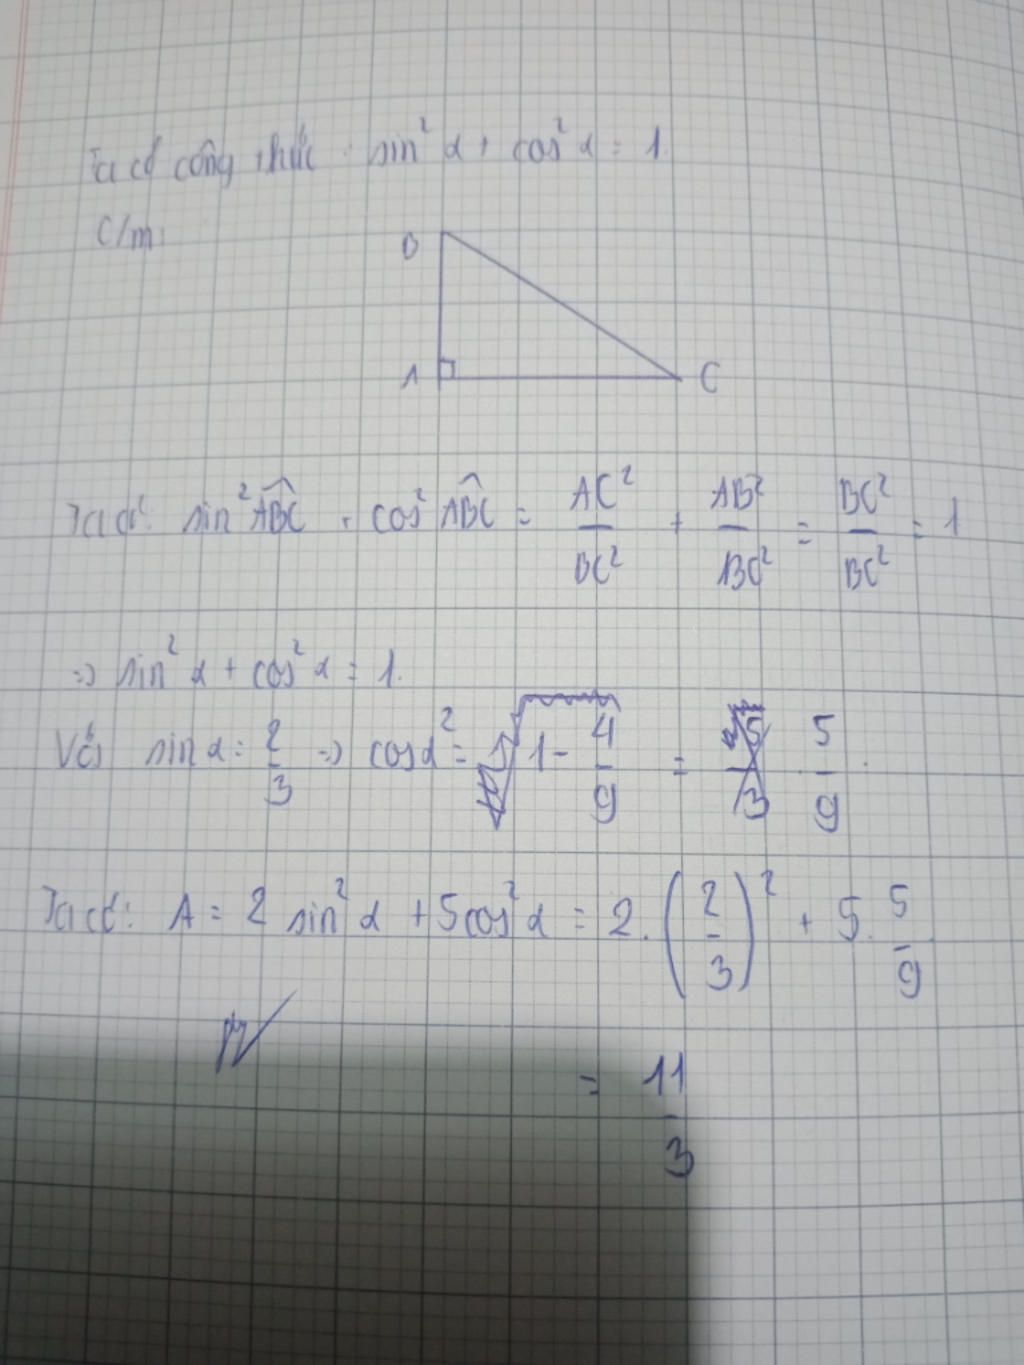 Ta có công thức: sin² α + cos² α = 1.
C/m:
B
A
C
Ta có: sin² ABC + cos² ABC = AC²/BC² + AB²/BC² = BC²/BC² = 1
=> sin² α + cos² α = 1.
Với sin α = 2/3 => cos α² = 1 - 4/9 = 5/9.
Ta có: A = 2 sin² α + 5 cos² α = 2. (2/3)² + 5. 5/9
= 11/3